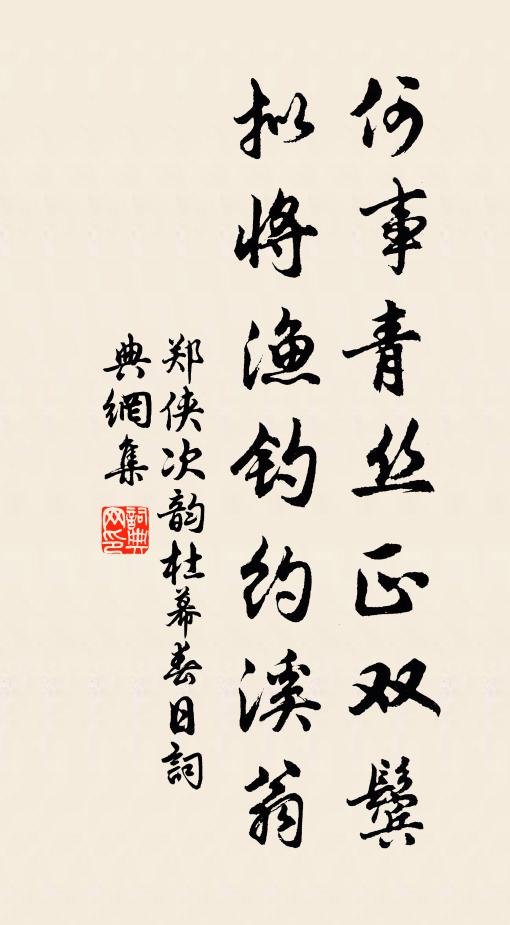 何事青丝正双鬓
拟将渔钓约溪翁
郑侠次韵杜幕春日詞
典網集
詞典网印